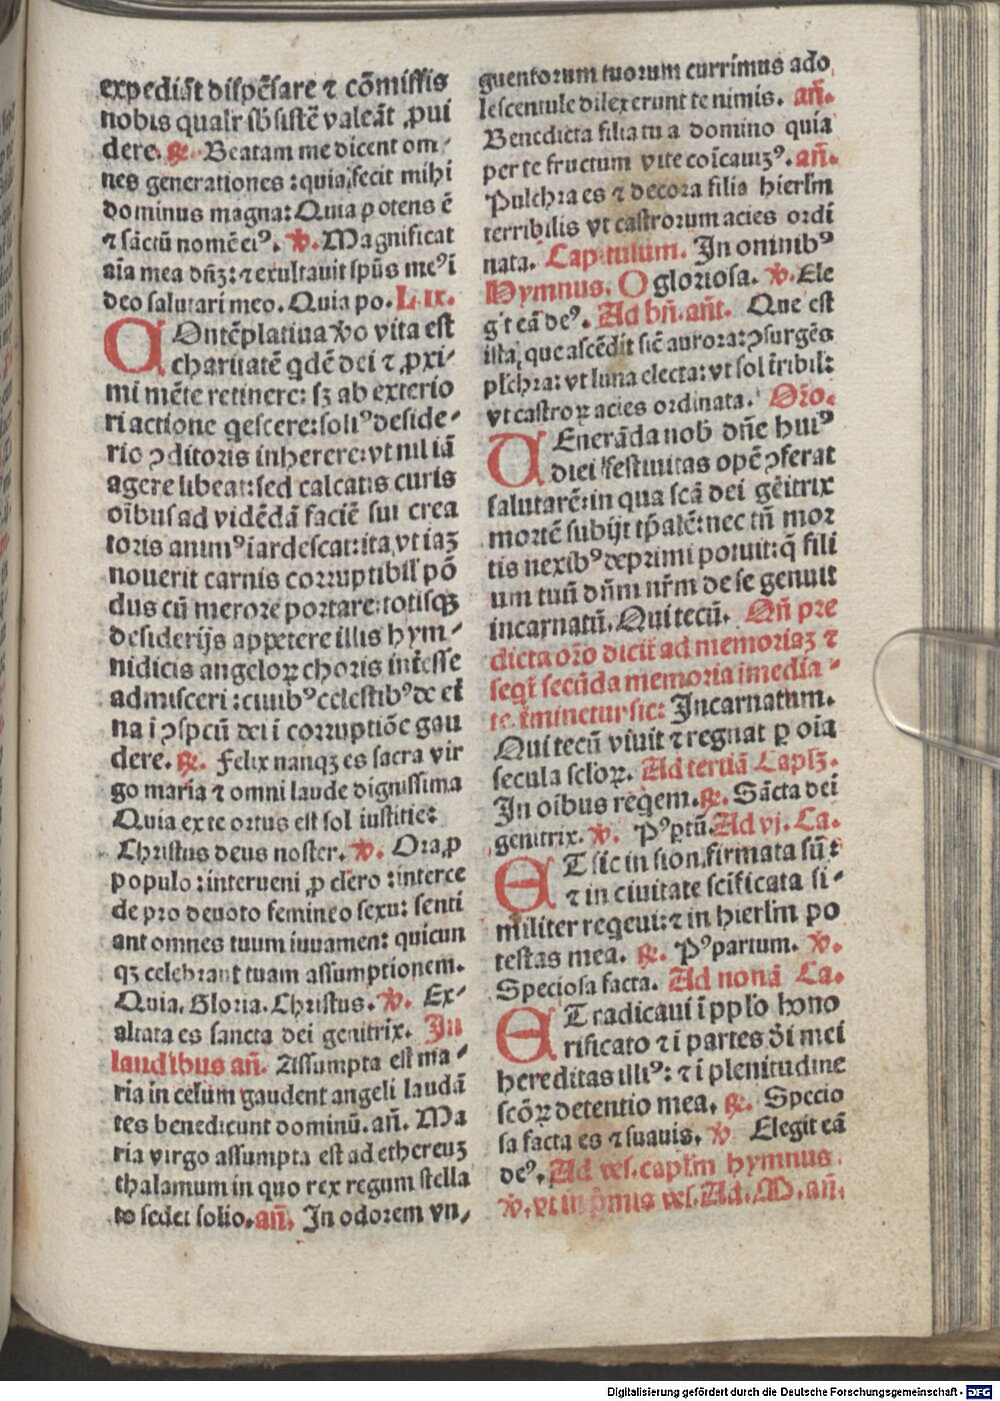 expediāt dispēsare ⁊ cōmissis
nobis qualr sb̄sistē valeāt ꝓui
dere. ℟. Beatam me dicent om-
nes generationes : quia fecit mihi
dominus magna: Quia potens ē
⁊ sāctū nomē eiꝰ. ℣. Magnificat
aīa mea dn̄ꝫ: ⁊ exultauit spūs meꝰ ī
deo salutari meo. Quia po. L. ix.
COntēplatiua ꝟo vita est
charitatē qdē dei ⁊ ꝓxi-
mi mēte retinere: sꝫ ab exterio
ri actione qescere: soliꝰ deside-
rio ꝯditoris inherere: vt nil iā
agere libeat: sed calcatis curis
oībus ad vidēdā faciē sui crea
toris animꝰ iardescat: ita, vt iaꝫ
nouerit carnis corruptibil̄ pō
dus cū merore portare: totisqꝫ
desiderijs appetere illis hym-
nidicis angeloꝝ choris int̄esse
admisceri : ciuibꝰ celestibꝰ de et̄
na i ꝯspcū dei i corruptiōe gau
dere. ℟. Felix nanqꝫ es sacra vir
go maria ⁊ omni laude dignissima
Quia ex te ortus est sol iustitie:
Christus deus noster. ℣. Ora ꝓ
populo : interueni ꝓ clero : interce
de pro deuoto femineo sexu: senti
ant omnes tuum iuuamen: quicun
qꝫ celebrant tuam assumptionem.
Quia. Gloria. Christus. ℣. Ex-
altata es sancta dei genitrix. In
laudibus an̄. Assumpta est ma-
ria in celum gaudent angeli laudā
tes benedicunt dominū. an̄. Ma
ria virgo assumpta est ad ethereuꝫ
thalamum in quo rex regum stella
to sedet solio. an̄. In odorem vn-
guentorum tuorum currimus ado
lescentule dilexerunt te nimis. an̄.
Benedicta filia tu a domino quia
per te fructum vite coīcauiꝫꝰ. an̄.
Pulchra es ⁊ decora filia hierlm̄
terribilis vt castrorum acies ordi
nata. Capitulum. In omnibꝰ
Hymnus. O gloriosa. ℣. Ele
git eā deꝰ. Ad bn̄. ant̄. Que est
ista, que ascēdit sic̄ aurora: ꝯsurgēs
pl̄chra: vt luna electa: vt sol t̄ribil:
vt castroꝝ acies ordinata. Oro.
VEnerāda nob̄ dn̄e huiꝰ
diei festiuitas opē ꝯferat
salutarē: in qua scā dei gēitrix
mortē subijt tp̄alē: nec tn̄ mor
tis nexibꝰ deprimi potuit: q̄ fili
um tuū dn̄m nr̄m de se genuit
incarnatū. Qui tecū. Qn̄ pre
dicta oro dicit̄ ad memoriaꝫ ⁊
seqt̄ secūda memoria imedia-
te t̄minetur sic: Incarnatum.
Qui tecū viuit ⁊ regnat ꝑ oīa
secula scl̄oꝝ. Ad tertiā Caplꝫ.
In oībus reqem. ℟. Sācta dei
genitrix. ℣. Pꝰ ptū. Ad vj. Ca.
ET sic in sion firmata sū ⁊
⁊ in ciuitate scificata si-
militer requeui: ⁊ in hierlm̄ po
testas mea. ℟. Pꝰ partum. ℣.
Speciosa facta. Ad nonā Ca.
ET radicaui i pplo hono
rificato ⁊ i partes di mei
hereditas illiꝰ: ⁊ i plenitudine
scōꝝ detentio mea. ℟. Specio
sa facta es ⁊ suauis. ℣ Elegit eā
deꝰ. Ad ves. caplm̄ hymnus
℣. vt in p̄mus ves. Ad. M. an̄.
Digitalisierung gefördert durch die Deutsche Forschungsgemeinschaft - DFG